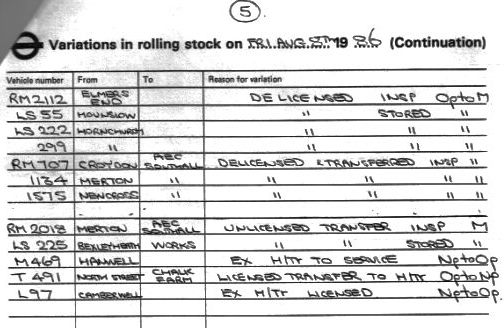 5
Variations in rolling stock on FRI. AUG. 8TH 19 86 (Continuation)
Vehicle number From To Reason for variation
RM2112 ELMERS END DELICENSED INSP Op to M
LS 55 HOUNSLOW " STORED "
LS 222 HORNCHURCH " " "
299 " " " "
RM 707 CROYDON AEC SOUTHALL DELICENSED & TRANSFERRED INSP "
1134 MERTON " " " " "
1575 NEWCROSS " " " " "
RM 2018 MERTON AEC SOUTHALL UNLICENSED TRANSFER INSP M
LS 225 BEXLEYHEATH WORKS " " STORED "
M469 HANWELL EX H/Tr TO SERVICE Np to Op
T 491 NORTH STREET CHALK FARM LICENSED TRANSFER TO H/Tr Op to Np
L97 CAMBERWELL EX H/Tr LICENSED Np to Op